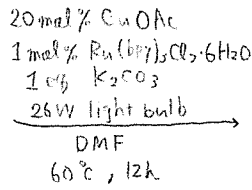 20 mol% CuOAc
1 mol% Ru(bpy)3Cl2·6H2O
1 eq K2CO3
26W light bulb
DMF
60°C, 12h